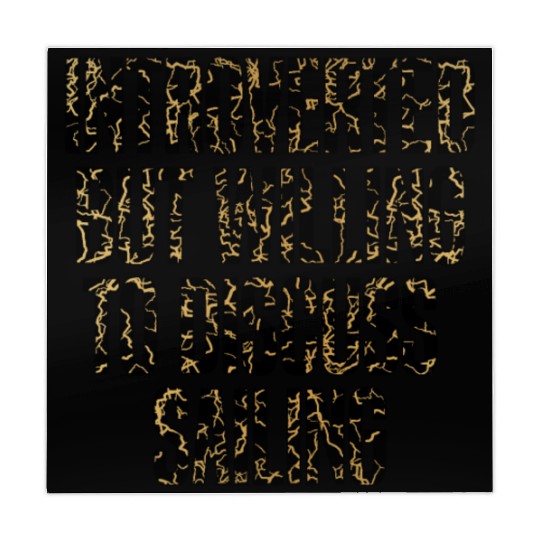 INTROVERTED
BUT WILLING
TO DISCUSS
SAILING